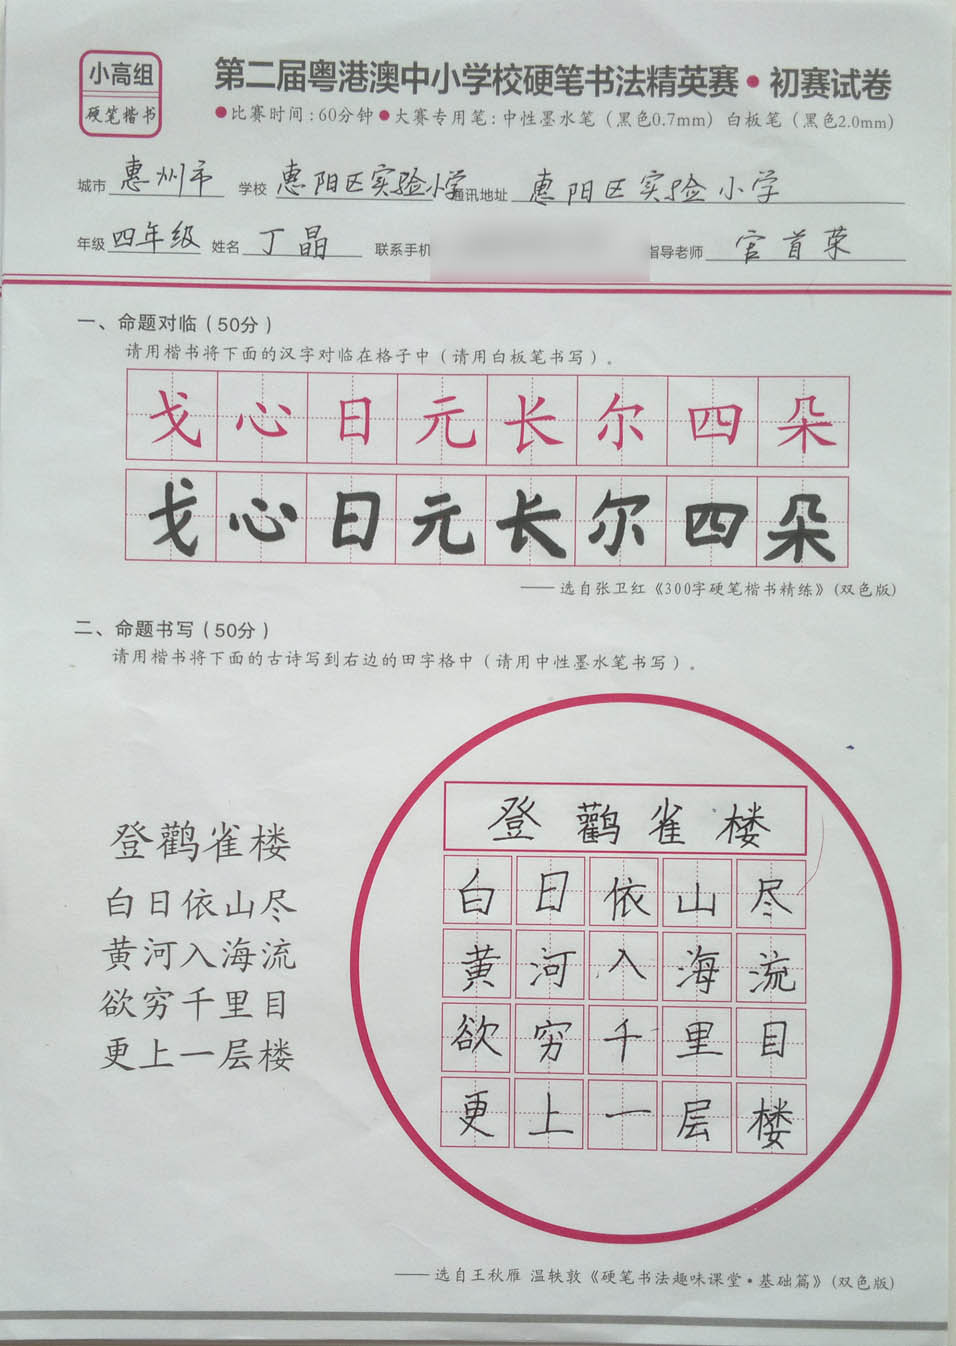 小高组
硬笔楷书
第二届粤港澳中小学校硬笔书法精英赛•初赛试卷
●比赛时间:60分钟●大赛专用笔:中性墨水笔（黑色0.7mm）白板笔（黑色2.0mm）
城市 惠州市 学校 惠阳区实验小学 通讯地址 惠阳区实验小学
年级 四年级 姓名 丁晶 联系手机 指导老师 官首荣
一、命题对临（50分）
请用楷书将下面的汉字对临在格子中（请用白板笔书写）。
戈心日元长尔四朵
戈心日元长尔四朵
—— 选自张卫红《300字硬笔楷书精练》(双色版)
二、命题书写（50分）
请用楷书将下面的古诗写到右边的田字格中（请用中性墨水笔书写）。
登鹳雀楼
白日依山尽
黄河入海流
欲穷千里目
更上一层楼
登鹳雀楼
白日依山尽
黄河入海流
欲穷千里目
更上一层楼
—— 选自王秋雁 温轶敦《硬笔书法趣味课堂•基础篇》(双色版)